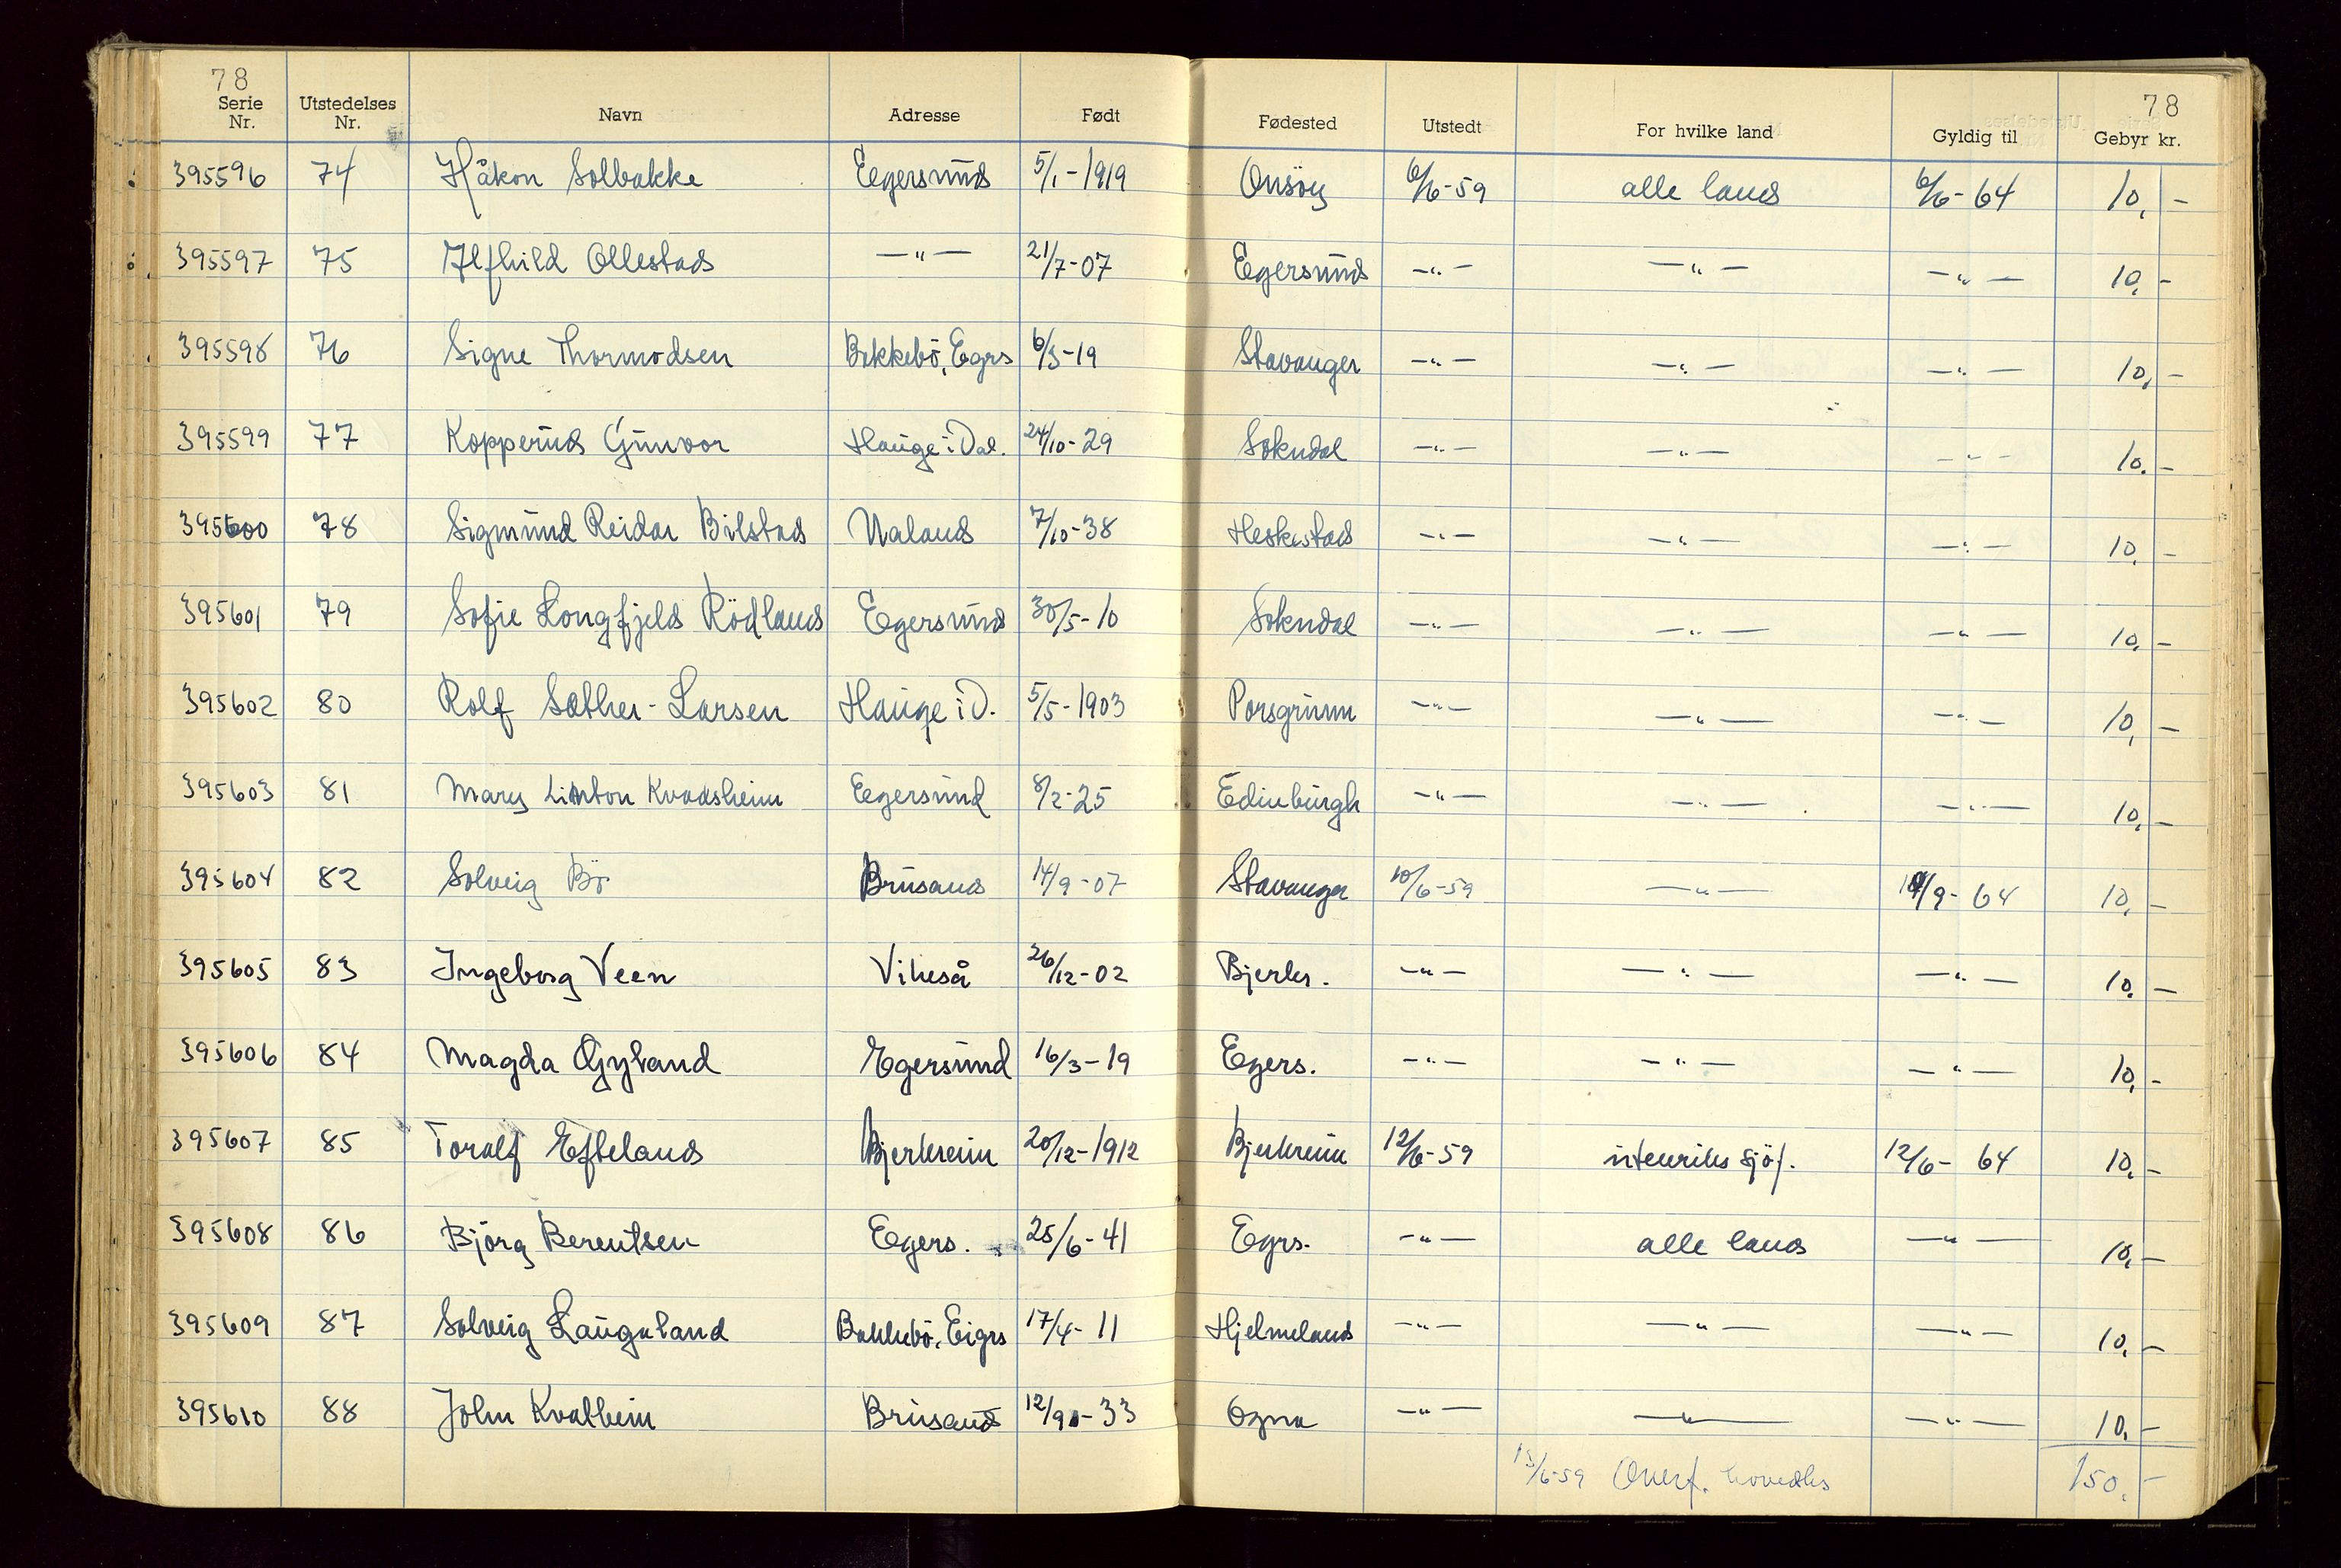 78 78
Serie Nr. Utstedelses Nr. Navn Adresse Født Fødested Utstedt For hvilke land Gyldig til Gebyr kr.
395596 74 Håkon Solbakke Egersund 5/1-1919 Onsöy 6/6-59 alle land 6/6-64 10,-
395597 75 Alfhild Ollestad —"— 21/7-07 Egersund —"— —"— —"— 10,-
395598 76 Signe Thormodsen Bakkebö, Egrs 6/3-19 Stavanger —"— —"— —"— 10,-
395599 77 Kopperud Gunvor Hauge i Dal. 24/10-29 Sokndal —"— —"— —"— 10.-
395600 78 Sigmund Reidar Bilstad Ualand 7/10-38 Heskestad —"— —"— —"— 10,-
395601 79 Sofie Longfjeld Rödland Egersund 30/5-10 Sokndal —"— —"— —"— 10,-
395602 80 Rolf Sæther-Larsen Hauge i D. 5/5-1903 Porsgrunn —"— —"— —"— 10,-
395603 81 Mary Linton Kvadsheim Egersund 8/2-25 Edinburgh —"— —"— —"— 10,-
395604 82 Solveig Bö Brusand 14/9-07 Stavanger 10/6-59 —"— /9-64 10,-
395605 83 Ingeborg Veen Vikeså 26/12-02 Bjerkr. —"— —"— —"— 10.-
395606 84 Magda Gyland Egersund 16/3-19 Egers. —"— —"— —"— 10,-
395607 85 Toralf Efteland Bjerkreim 20/12-1912 Bjerkreim 12/6-59 utenriks sjöf. 12/6-64 10,-
395608 86 Björg Berentsen Egers. 25/6-41 Egrs. —"— alle land —"— 10,-
395609 87 Solveig Laugaland Bakkebö, Eigrs 17/4-11 Hjelmeland —"— —"— —"— 10,-
395610 88 John Kvalheim Brusand 12/9-33 Ogna —"— —"— —"— 10,-
15/6-59 Overf. hovedks 150,-